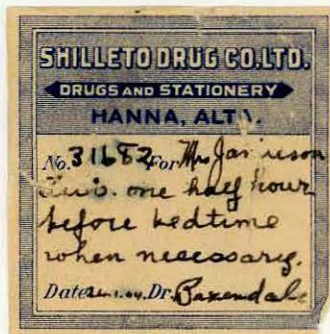 SHILLETO DRUG CO. LTD.
DRUGS AND STATIONERY
HANNA, ALTA.
No. 31682 For Mrs Jamieson
Two. one half hour
before bedtime
when necessary.
Date 1.44. Dr. Baxendale